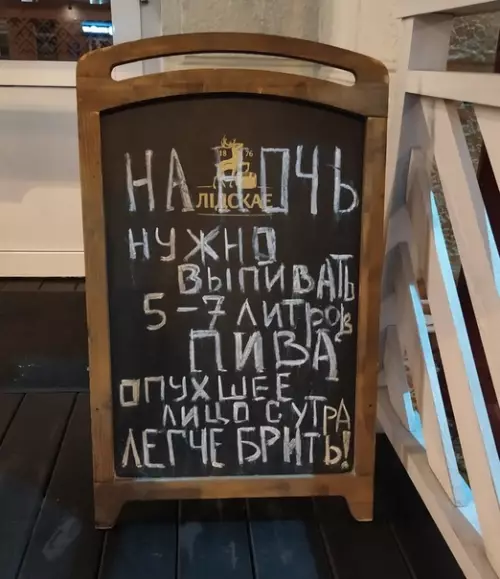 НА НОЧЬ
18 76
ЛІДСКАЕ
НУЖНО
ВЫПИВАТЬ
5-7 ЛИТРОВ
ПИВА
ОПУХШЕЕ
ЛИЦО С УТРА
ЛЕГЧЕ БРИТЬ!